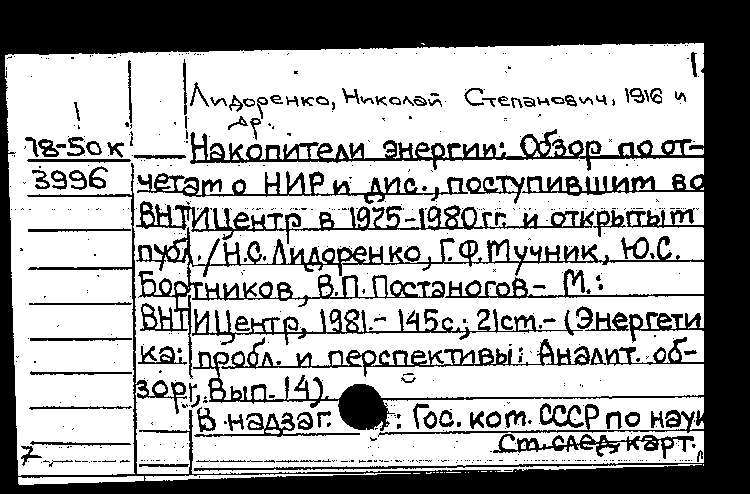 Лидоренко, Николай Степанович, 1916 и
др.
78-50к
3996
Накопители энергии: Обзор по от-
четам о НИР и дис., поступившим во
ВНТИЦентр в 1975-1980гг. и открытым
публ./Н.С. Лидоренко, Г.Ф. Мучник, Ю.С.
Бортников, В.П. Постаногов.- М.:
ВНТИЦентр, 1981.- 145с.; 21см.- (Энергети
ка: пробл. и перспективы: Аналит. об-
зор; Вып. 14).
В надзаг. : Гос. ком. СССР по наук
См. след. карт.
7